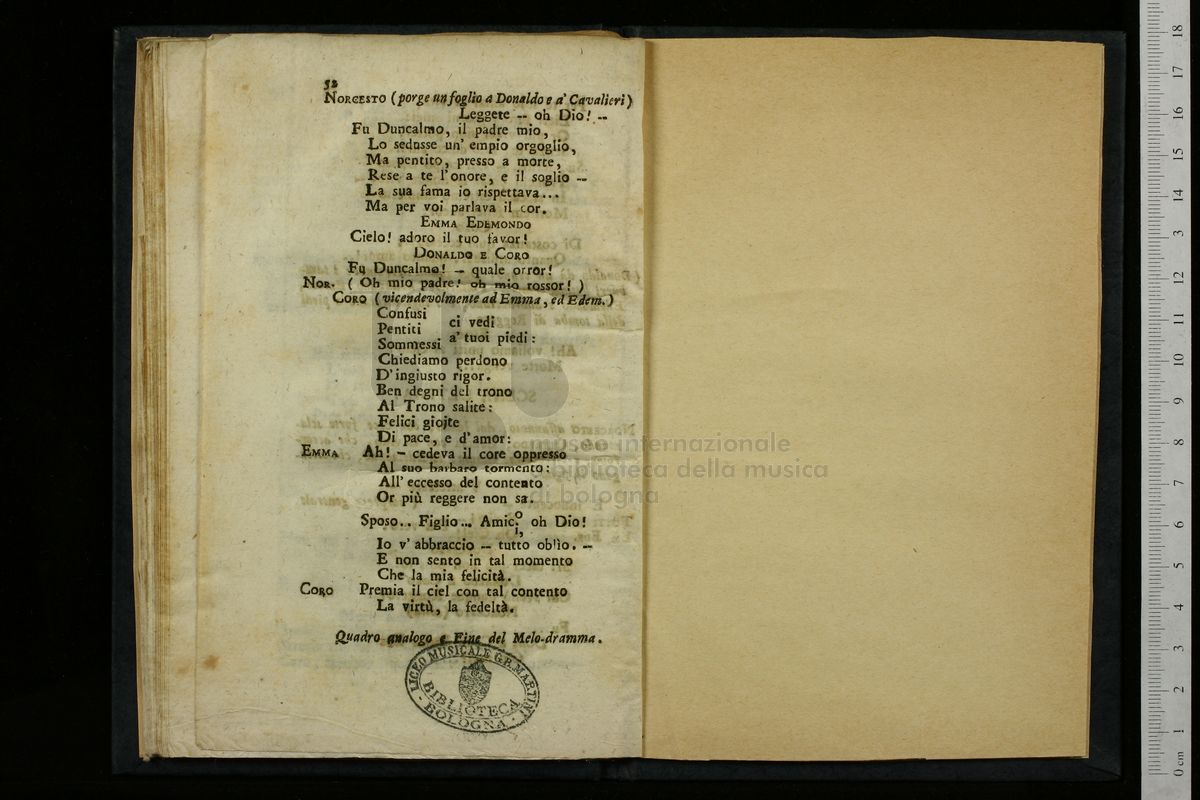 52
NORCESTO (porge un foglio a Donaldo e a' Cavalieri)
Leggete -- oh Dio! --
Fu Duncalmo, il padre mio,
Lo sedusse un' empio orgoglio,
Ma pentito, presso a morte,
Rese a te l'onore, e il soglio --
La sua fama io rispettava...
Ma per voi parlava il cor.
EMMA EDEMONDO
Cielo! adoro il tuo favor!
DONALDO E CORO
Fu Duncalmo! -- quale orror!
NOR. ( Oh mio padre! oh mio rossor! )
CORO (vicendevolmente ad Emma, ed Edem.)
Confusi
Pentiti
Sommessi
ci vedi
a' tuoi piedi:
Chiediamo perdono
D'ingiusto rigor.
Ben degni del trono
Al Trono salite:
Felici gioite
Di pace, e d'amor:
EMMA Ah! -- cedeva il core oppresso
Al suo barbaro tormento:
All' eccesso del contento
Or più reggere non sa.
Sposo.. Figlio... Amic o
i, oh Dio!
Io v' abbraccio -- tutto oblìo. --
E non sento in tal momento
Che la mia felicità.
CORO Premia il ciel con tal contento
La virtù, la fedeltà.
Quadro analogo e Fine del Melo-dramma.
LICEO MUSICALE G.B. MARTINI
BIBLIOTECA
BOLOGNA
museo internazionale
biblioteca della musica
di bologna
0 cm 1 2 3 4 5 6 7 8 9 10 11 12 13 14 15 16 17 18